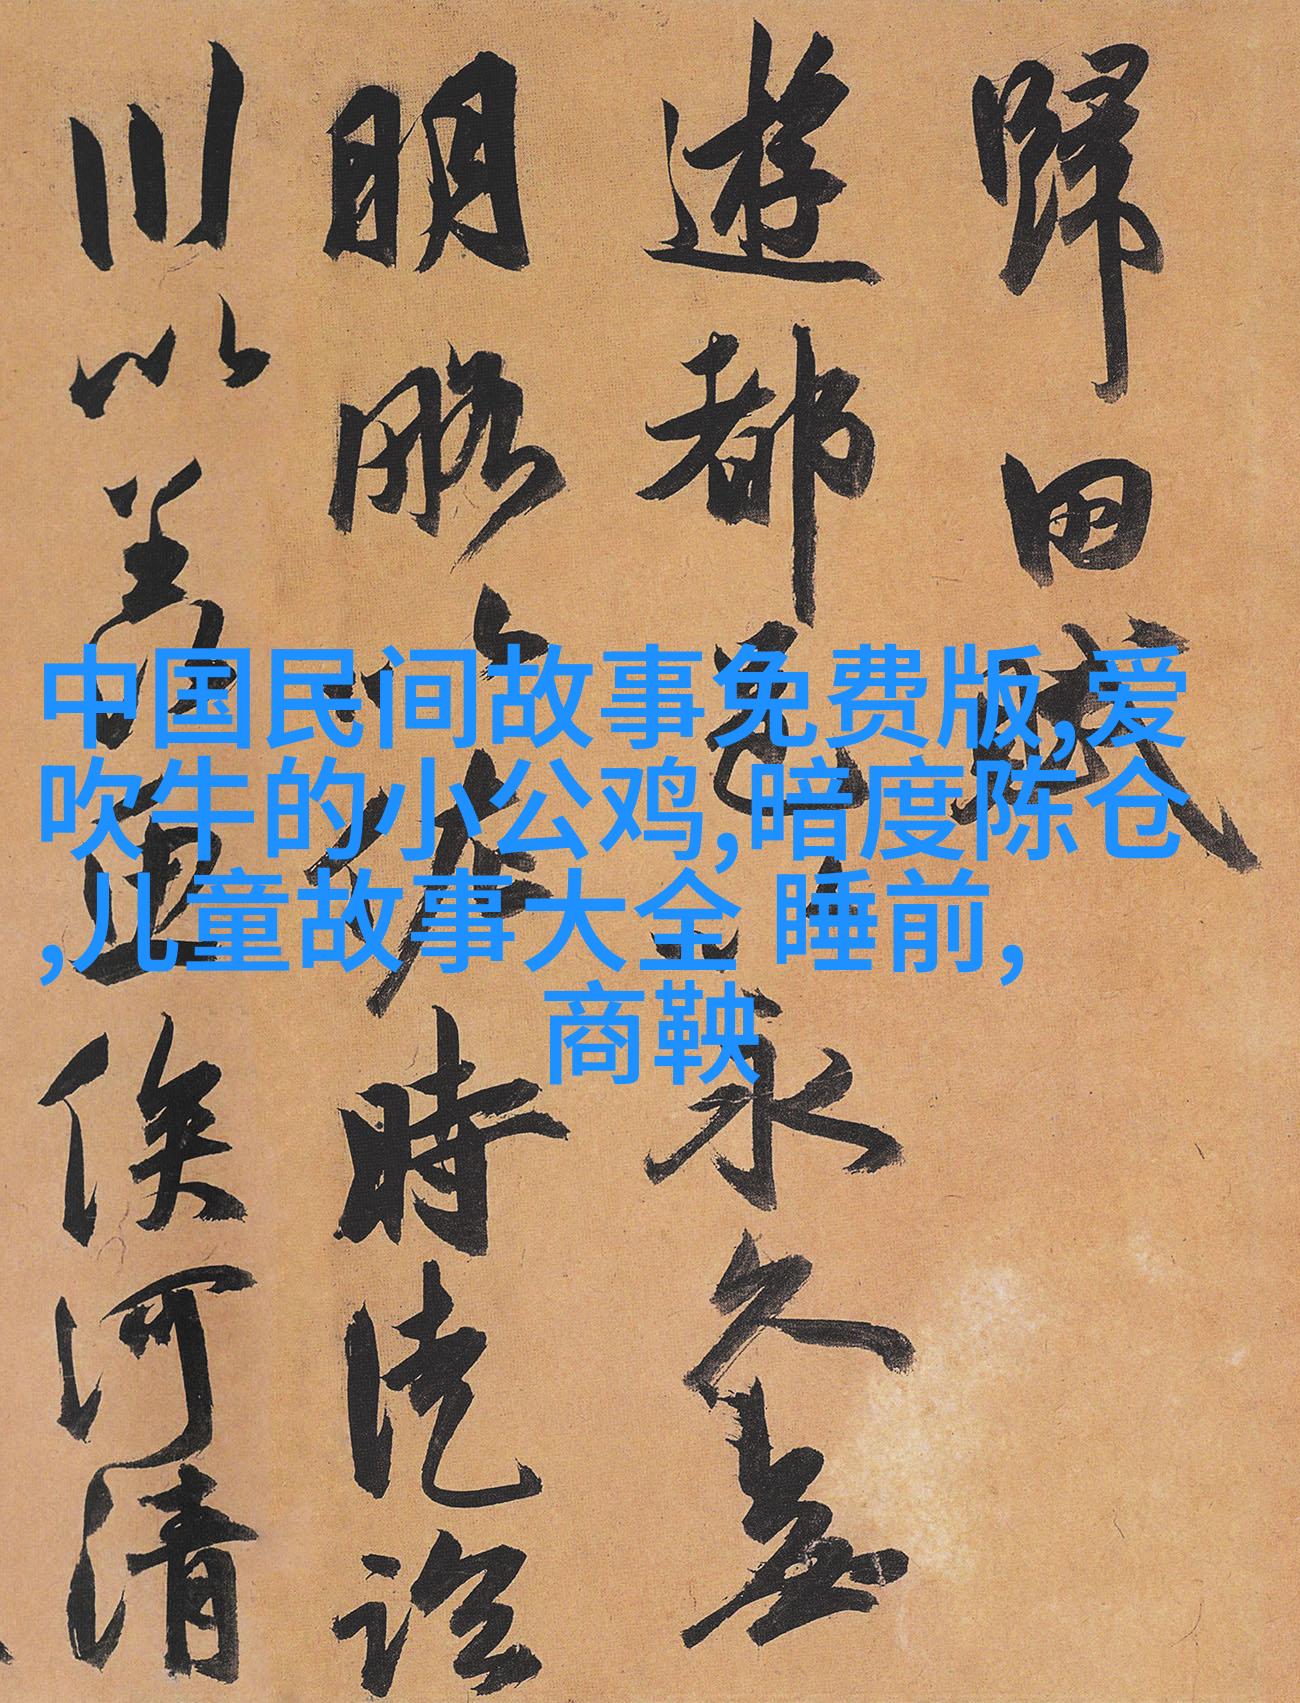 歸田賦
遊都邑以永久無
明略以佐時徒臨
川以羨魚俟河清
中国民间故事免费版,爱
吹牛的小公鸡,暗度陈仓
,儿童故事大全 睡前,
商鞅